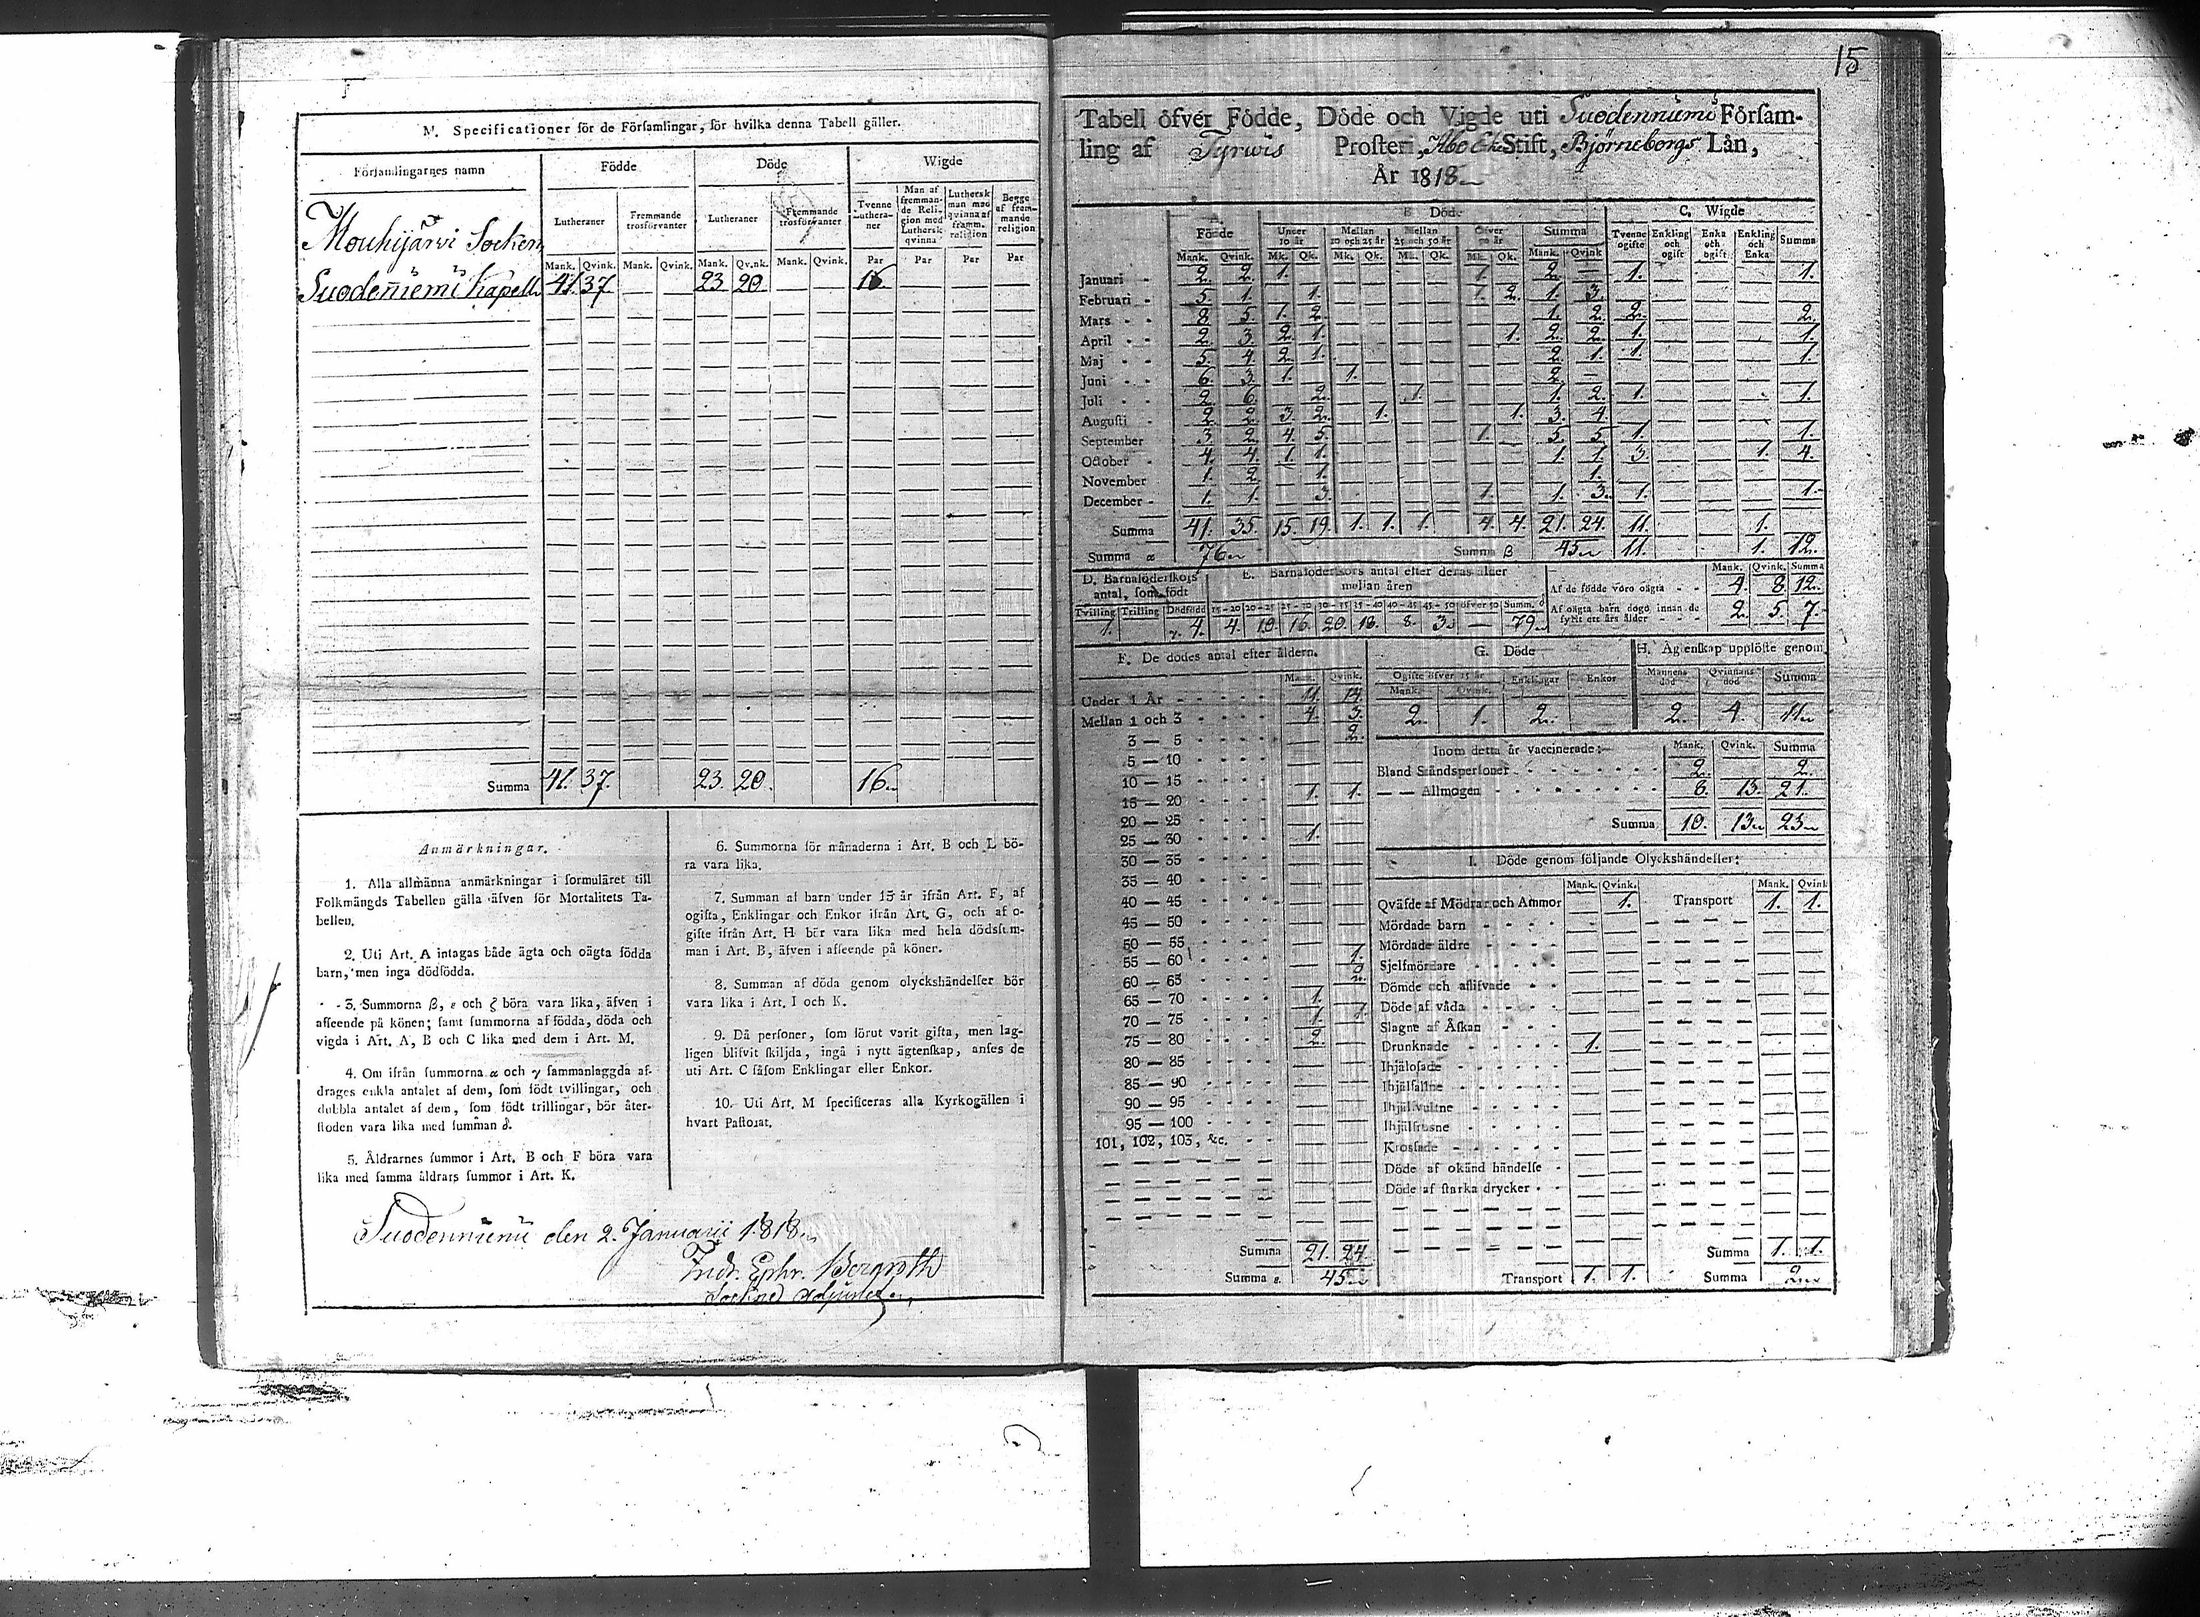 M. Specificationer för de Församlingar, för hvilka denna Tabell gäller.
Församlingarnes namn Födde Döde Wigde
Lutheraner Fremmande trosförvanter Lutheraner Fremmande trosförvanter Tvenne Lutheraner Man af fremmande Religion med Luthersk qvinna Luthersk man med qvinna af framm. religion Begge af fremmande religion
Mank. Qvink. Mank. Qvink. Mank. Qvink. Mank. Qvink. Par Par Par Par
Mouhijärvi Socken
Suodeniemi Kapell 41. 37 23 20 16
Summa 41. 37. 23. 20. 16
Anmärkningar.
1. Alla allmänna anmärkningar i formuläret till
Folkmängds Tabellen gälla äfven för Mortalitets Ta-
bellen.
2. Uti Art. A intagas både ägta och oägta födda
barn, men inga dödfödda.
3. Summorna β, ε och ζ böra vara lika, äfven i
afseende på könen; samt summorna af födda, döda och
vigda i Art. A, B och C lika med dem i Art. M.
4. Om ifrån summorna α och γ sammanlaggda af-
drages enkla antalet af dem, som födt tvillingar, och
dubbla antalet af dem, som födt trillingar, bör åter-
stoden vara lika med summan δ.
5. Åldrarnes summor i Art. B och F böra vara
lika med samma åldrars summor i Art. K.
6. Summorna för månaderna i Art. B och L bö-
ra vara lika.
7. Summan af barn under 15 år ifrån Art. F, af
ogifta, Enklingar och Enkor ifrån Art. G, och af o-
gifte ifrån Art. H bör vara lika med hela dödssum-
man i Art. B, äfven i afseende på köner.
8. Summan af döda genom olyckshändelser bör
vara lika i Art. I och K.
9. Då personer, som förut varit gifta, men lag-
ligen blifvit skiljda, ingå i nytt ägtenskap, anses de
uti Art. C såsom Enklingar eller Enkor.
10. Uti Art. M specificeras alla Kyrkogällen i
hvart Pastorat.
Suodenniemi den 2. Januarii 1818
Bergroth
15
Tabell öfver Födde, Döde och Vigde uti Suodenniemi Församling
ling af Tyrwis Prosteri, Åbo Stift, Björneborgs Län,
År 1818
Födde B Döde C. Wigde
Under 10 år Mellan 10 och 25 år Mellan 25 och 50 år Öfver 50 år Summa Tvenne ogifte Enkling och ogift Enka och ogift Enkling och Enka Summa
Mank. Qvink. Mk. Qk. Mk. Qk. Mk. Qk. Mk. Qk. Mank. Qvink
Januari 2. 2. 1. 1. 2. 1. 1.
Februari 5. 1. 1. 1. 2. 1. 3.
Mars 8. 5. 1. 2. 1. 2. 2. 2.
April 2. 3. 2. 1. 1. 2. 2. 1. 1.
Maj 5. 4. 2. 1. 2. 1. 1. 1.
Juni 6. 3. 1. 1. 2.
Juli 2. 6. 2. 1. 1. 2. 1. 1.
Augusti 2. 2. 3. 2. 1. 1. 3. 4.
September 3. 2. 4. 5. 1. 5. 5. 1. 1.
October 4. 4. 1. 1. 1. 1. 3. 1. 4.
November 1. 2. 1. 1.
December 1. 1. 3. 1. 1. 3. 1. 1.
Summa 41. 35. 15. 19. 1. 1. 1. 4. 4. 21. 24. 11. 1.
Summa α 76 Summa β 45 11. 1. 12.
D. Barnaföderskors antal, som födt
Tvilling Trilling Dödfödd
1. 4.
E. Barnaföderskors antal efter deras ålder mellan åren
15-20 20-25 25-30 30-35 35-40 40-45 45-50 öfver 50 Summ. δ
4. 10. 16. 20. 18. 8. 3. — 79
Mank. Qvink. Summa
Af de födde voro oägta 4. 8 12.
Af oägta barn dogo innan de fyllt ett års ålder 2. 5. 7.
F. De dödes antal efter åldern.
Mank. Qvink.
Under 1 År 11. 14.
Mellan 1 och 3 4. 3.
3 — 5 2.
5 — 10
10 — 15
15 — 20 1. 1.
20 — 25
25 — 30 1.
30 — 35
35 — 40
40 — 45
45 — 50
50 — 55
55 — 60 1.
60 — 65 2.
65 — 70 1.
70 — 75 1. 1.
75 — 80 2.
80 — 85
85 — 90
90 — 95
95 — 100
101, 102, 103, &c.
Summa 21. 24.
Summa ε. 45
G. Döde
Ogifte öfver 15 år Enklingar Enkor
Mank. Qvink.
2. 1. 2.
H. Ägtenskap upplöste genom
Mannens död Qvinnans död Summa
2. 4. 11
Inom detta år vaccinerade: Mank. Qvink. Summa
Bland Ståndspersoner 2. 2.
— — Allmogen 8. 13. 21.
Summa 10. 13 23
I. Döde genom följande Olyckshändelser:
Mank. Qvink. Mank. Qvink
Qväfde af Mödrar och Ammor 1. Transport 1. 1.
Mördade barn
Mördade äldre
Sjelfmördare
Dömde och aflifvade
Döde af våda
Slagne af Åskan
Drunknade 1.
Ihjälosade
Ihjälfallne
Ihjälsvultne
Ihjälfrusne
Krossade
Döde af okänd händelse
Döde af starka drycker
Summa 1. 1.
Transport 1. 1. Summa 2